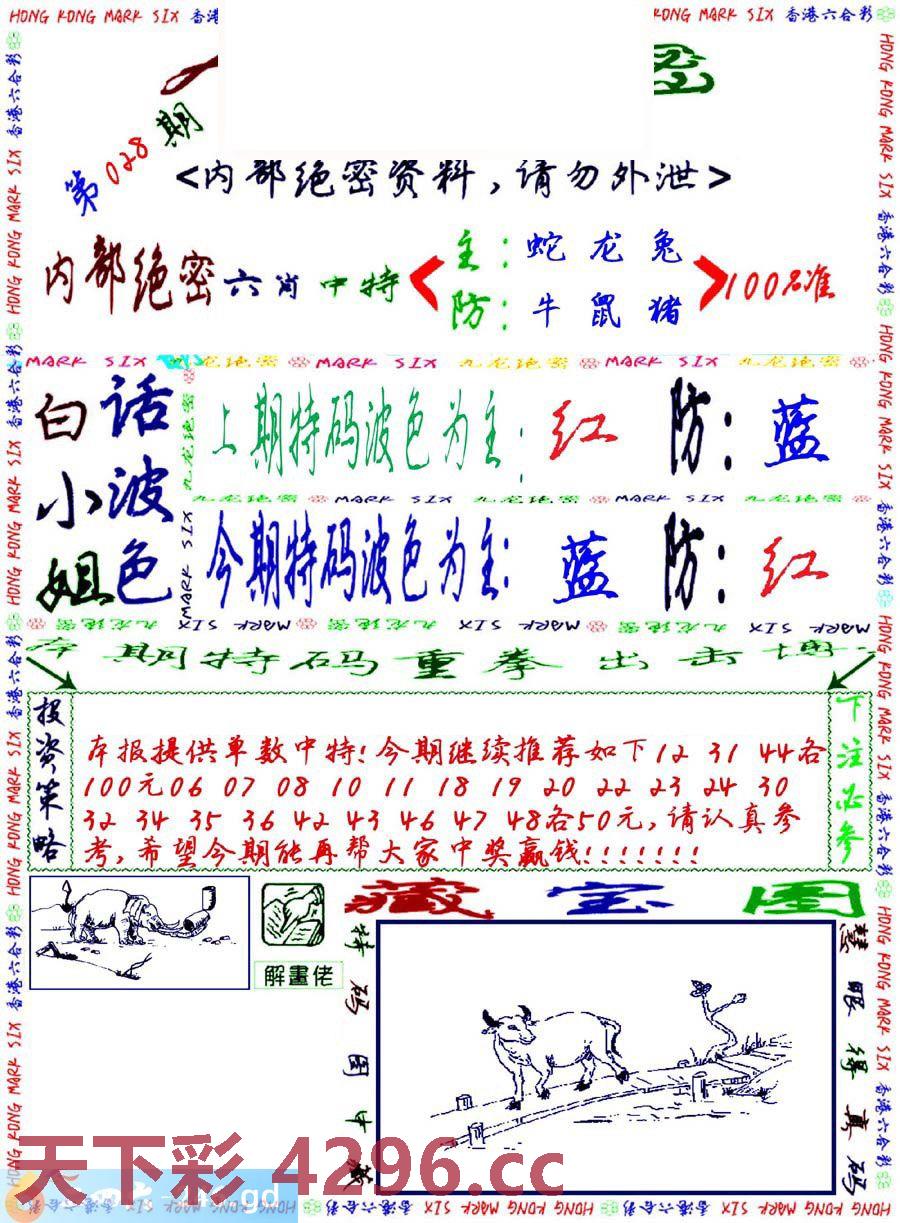 HONG KONG MARK SIX 香港六合彩
KONG MARK SIX 香港六合彩
第028期
<内部绝密资料,请勿外泄>
内部绝密六肖中特
主:蛇龙兔
防:牛鼠猪
100%准
MARK SIX 九龙绝密 MARK SIX 九龙绝密 MARK SIX 九龙绝密
白话
小波
姐色
上期特码波色为主:红 防:蓝
九龙绝密 MARK SIX 九龙绝密 MARK SIX 九龙绝密
今期特码波色为主:蓝 防:红
期特码重拳出击
投资策略
本报提供单数中特!今期继续推荐如下12 31 44各
100元06 07 08 10 11 18 19 20 22 23 24 30
32 34 35 36 42 43 46 47 48各50元,请认真参
考,希望今期能再帮大家中奖赢钱!!!!!!!
下注必参
藏宝图
解畫佬
特码图中藏
慧眼得真码
天下彩 4296.cc
gd